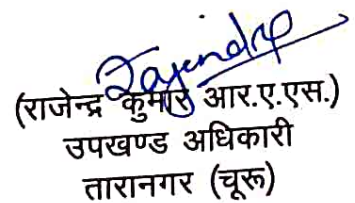 Rajendra
(राजेन्द्र कुमार आर.ए.एस.)
उपखण्ड अधिकारी
तारानगर (चूरू)